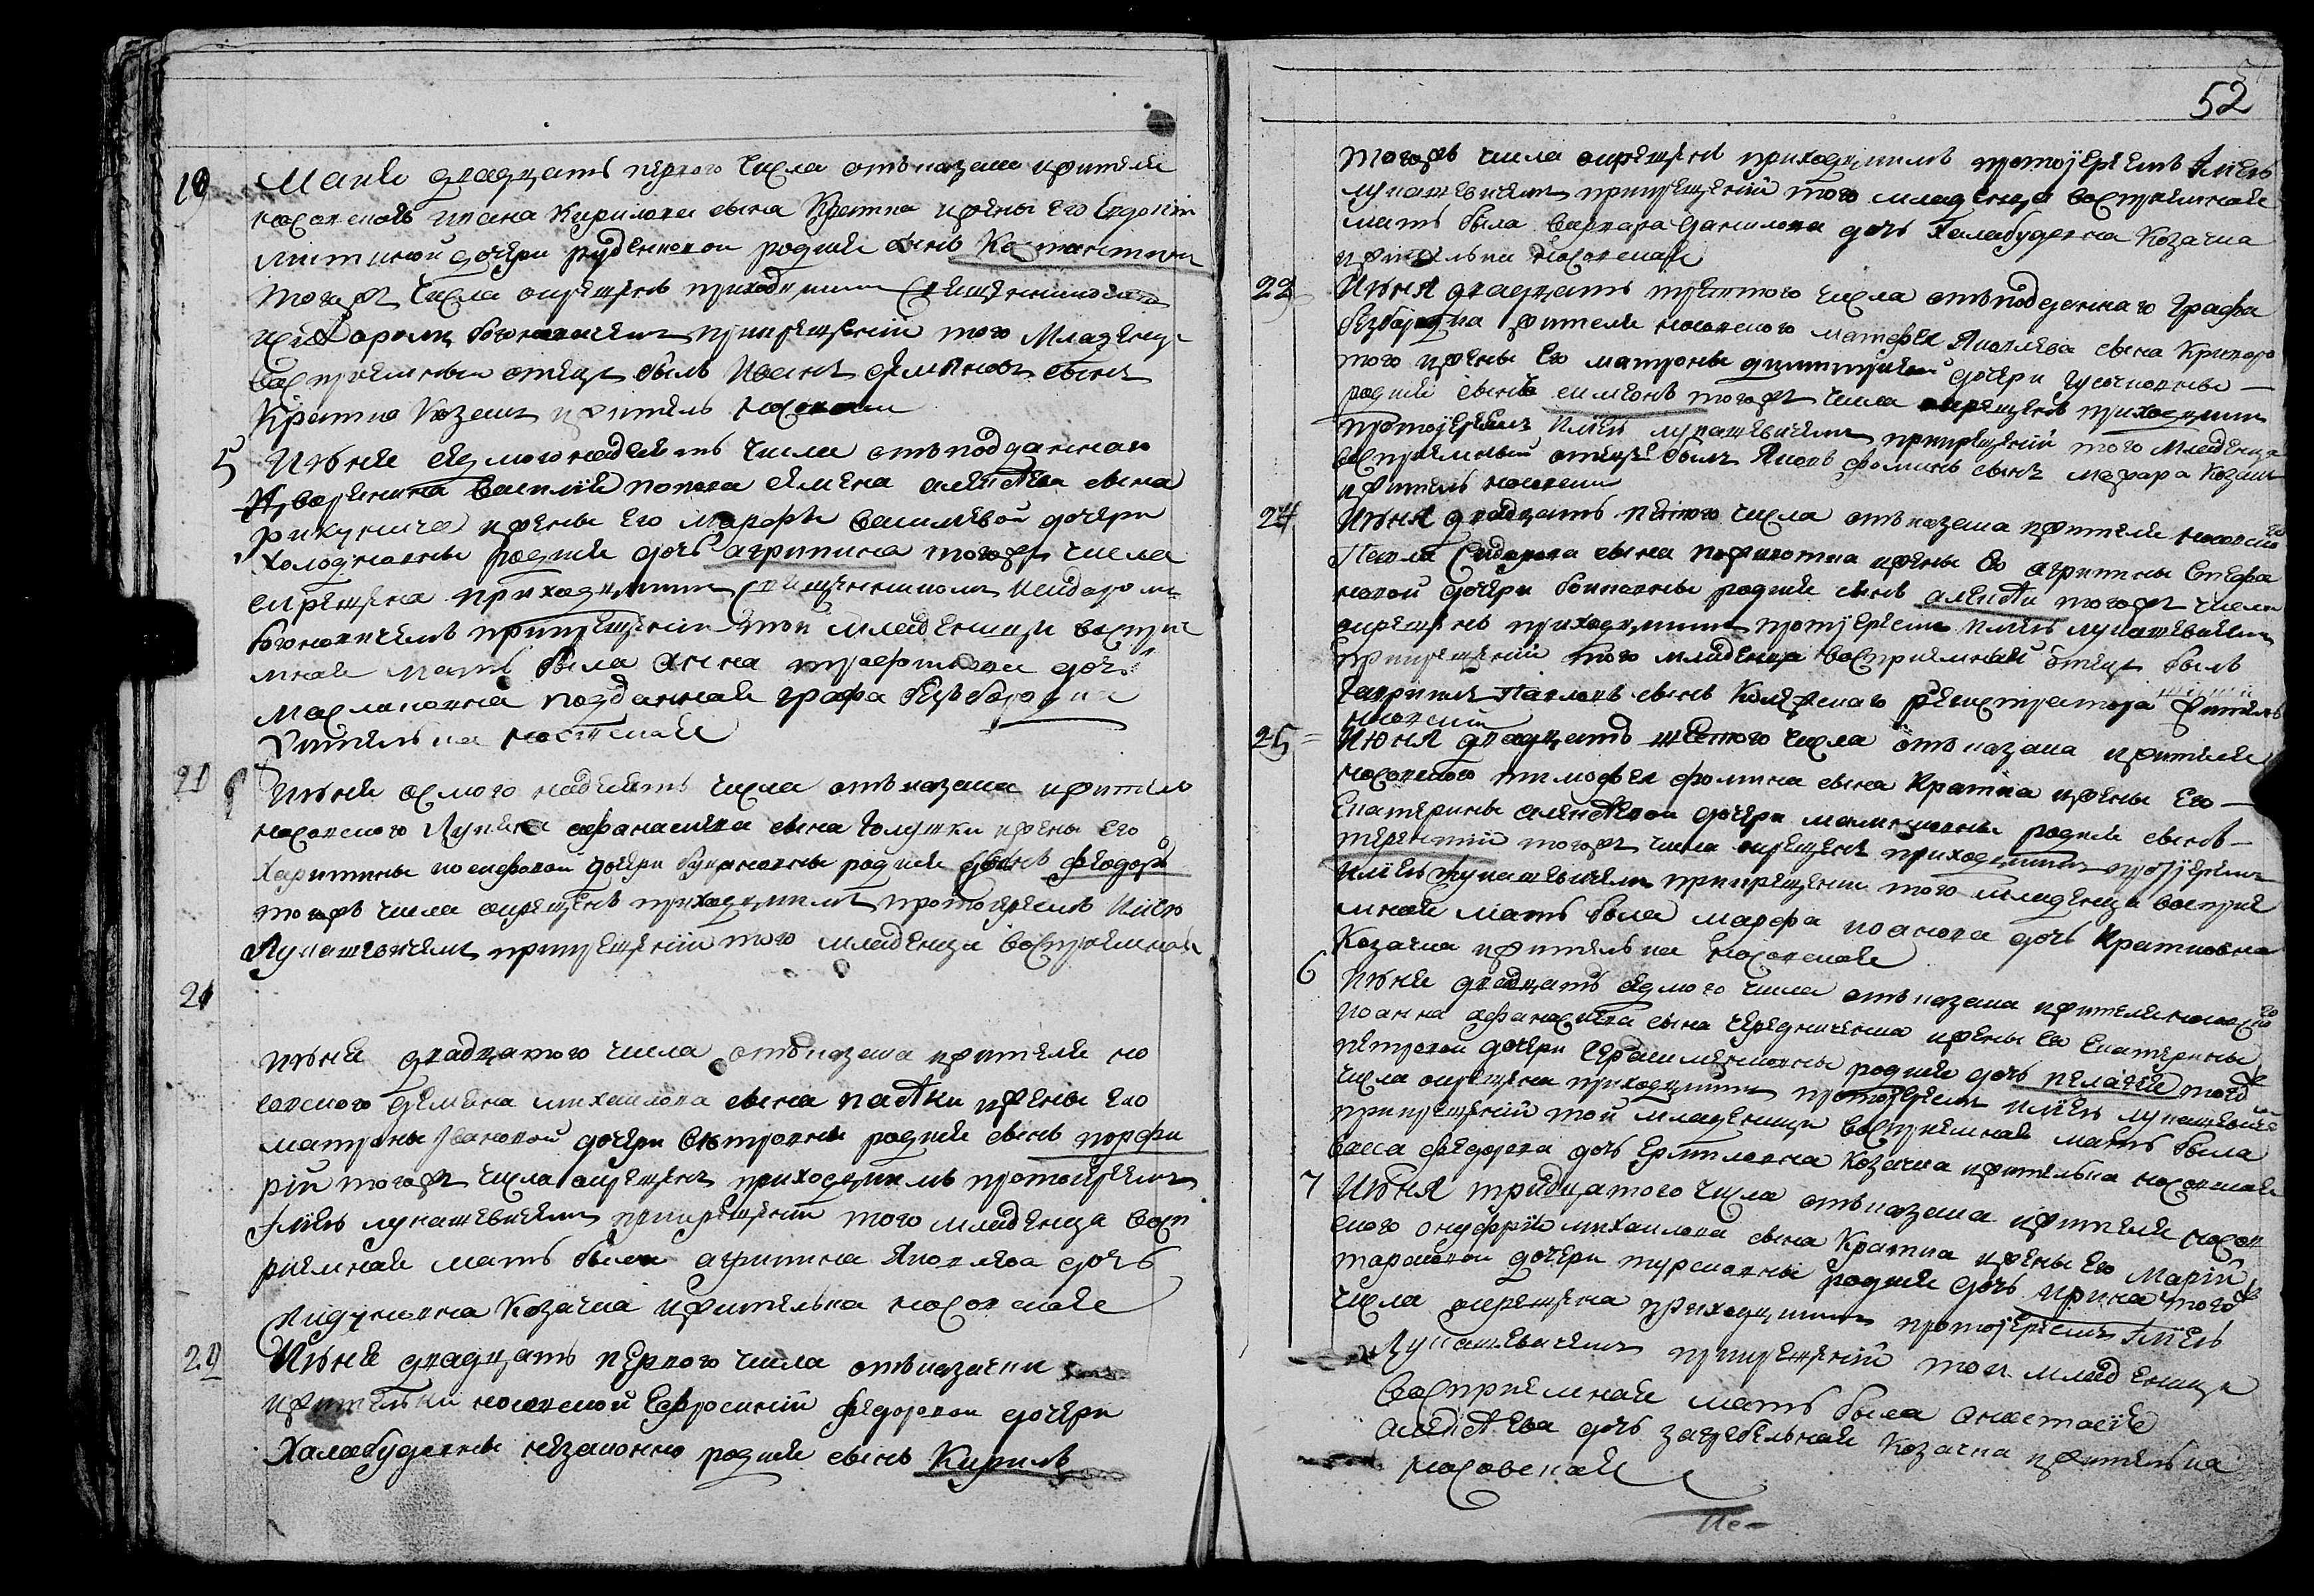 19 Маия двадцать первого числа отъ козака и жителя
носовского ивана Кирилова сына Кратка и жены его Евдокіи
никитиной дочери руденковои родися сынъ Костантинъ
тогожъ числа окрещенъ приходцкимъ священникомъ
исидоромъ богоновичемъ при крещеніи того Младенца
воспріемный отецъ былъ Иванъ семіновъ сынъ
Кратко Козакъ и житель носовскии
5 Июня седмогонадцять числа отъ подданного
дворенина василія попова семена алексѣева сына
рикунича и жены его марфы василиевой дочери
холодковны родися дочь агрипина тогожъ числа
окрещена приходцкимъ священникомъ исидоромъ
богоновичемъ при крещеніи той младеници воспріе
мная мать была анна трофимова дочь
масликовна подданная графа безбородки
жителька носовская
20 8 Июня осмогонадцять числа отъ козака и жителя
носовского лукяна афанасиева сына голушки и жены его
харитины иосифовой дочери букановны родися сынъ феодоръ
тогожъ числа окрещенъ приходцкимъ протоиереемъ Иліею
Лукашевичемъ при крещеніи того младенца воспріемная
21
июня двадцатого числа отъ козака и жителя но
совского демяна михаилова сына паѣки и жены его
матроны ивановой дочери вѣтровны родися сынъ порфи
рій тогожъ числа окрещенъ приходцкимъ протоиереемъ
Іліею лукашевичемъ при крещеніи того младенца восп
риемная мать была агрипина Яковлева дочь
лидуковна Козачка и жителька носовская
22 Июня двадцать первого числа отъ козачки
и жительки носовской Ефросиніи федоровои дочери
Халабудовны незаконно родися сынъ Кирилъ
52
тогожъ числа окрещенъ приходцкимъ протоіереемъ Іліею
лукашевичемъ при крещеніи того младенца воспріемная
мать была варвара данилова дочь Халабудовна Козачка
и жителька носовская
23 Июня двадцать третого числа отъ подданного Графа
безбородка жителя носовского матфея Яковлева сына Криворо
того и жены его матроны димитриевы дочери гусочковны
родися сынъ симеонъ тогожъ числа окрещенъ приходцкимъ
протоіереемъ Иліею лукашевичемъ при крещеніи того младенца
воспріемный отецъ былъ Яковъ фоминъ сынъ мазара Козакъ
и житель носовскии
24 Июня двадцать пятого числа отъ козака и жителя носовского
Павла Сидорова сына порихотка и жены его агрипины Стефа
новой дочери бойковны родися сынъ алексѣй тогожъ числа
окрещенъ приходцкимъ протоіереемъ Иліею лукашевичемъ
при крещеніи того младенца воспріемный отецъ былъ
Гавриилъ Павловъ сынъ Колежского регистратора житель
носовскии
25 Июня двадцать шестого числа отъ козака и жителя
носовского тимофея фомина сына Кратка и жены Его
Екатерины алексѣевои дочери малишовны родися сынъ
терентій тогожъ числа окрещенъ приходцкимъ протоіереемъ
Иліею лукашевичемъ при крещеніи того младенца воспріе
мная мать была марфа иоанова дочь Кратковна
Козачка и жителька носовская
6 Июня двадцать седмого числа отъ козака и жителя носовского
иоанна афанасиева сына чередниченка и жены его Екатерины
петровой дочери Герасименковны родися дочь пелагея тогожъ
числа окрещена приходцкимъ протоіереемъ Иліею лукашевичемъ
при крещеніи той младеници воспріемная мать была
васса федорова дочь Ермиловна Козачка и жителька носовская
7 Июня тридцатого числа отъ козака и жителя носов
ского онуфрія михаилова сына Кратка и жены Его Маріи
тарасовой дочери турсковны родися дочь ирина тогожъ
числа окрещена приходцкимъ протоіереемъ Іліею
Лукашевичемъ при крещеніи той младеници
воспріемная мать была анастасія
алексѣева дочь загребельная Козачка и жителька
носовская
Ис-